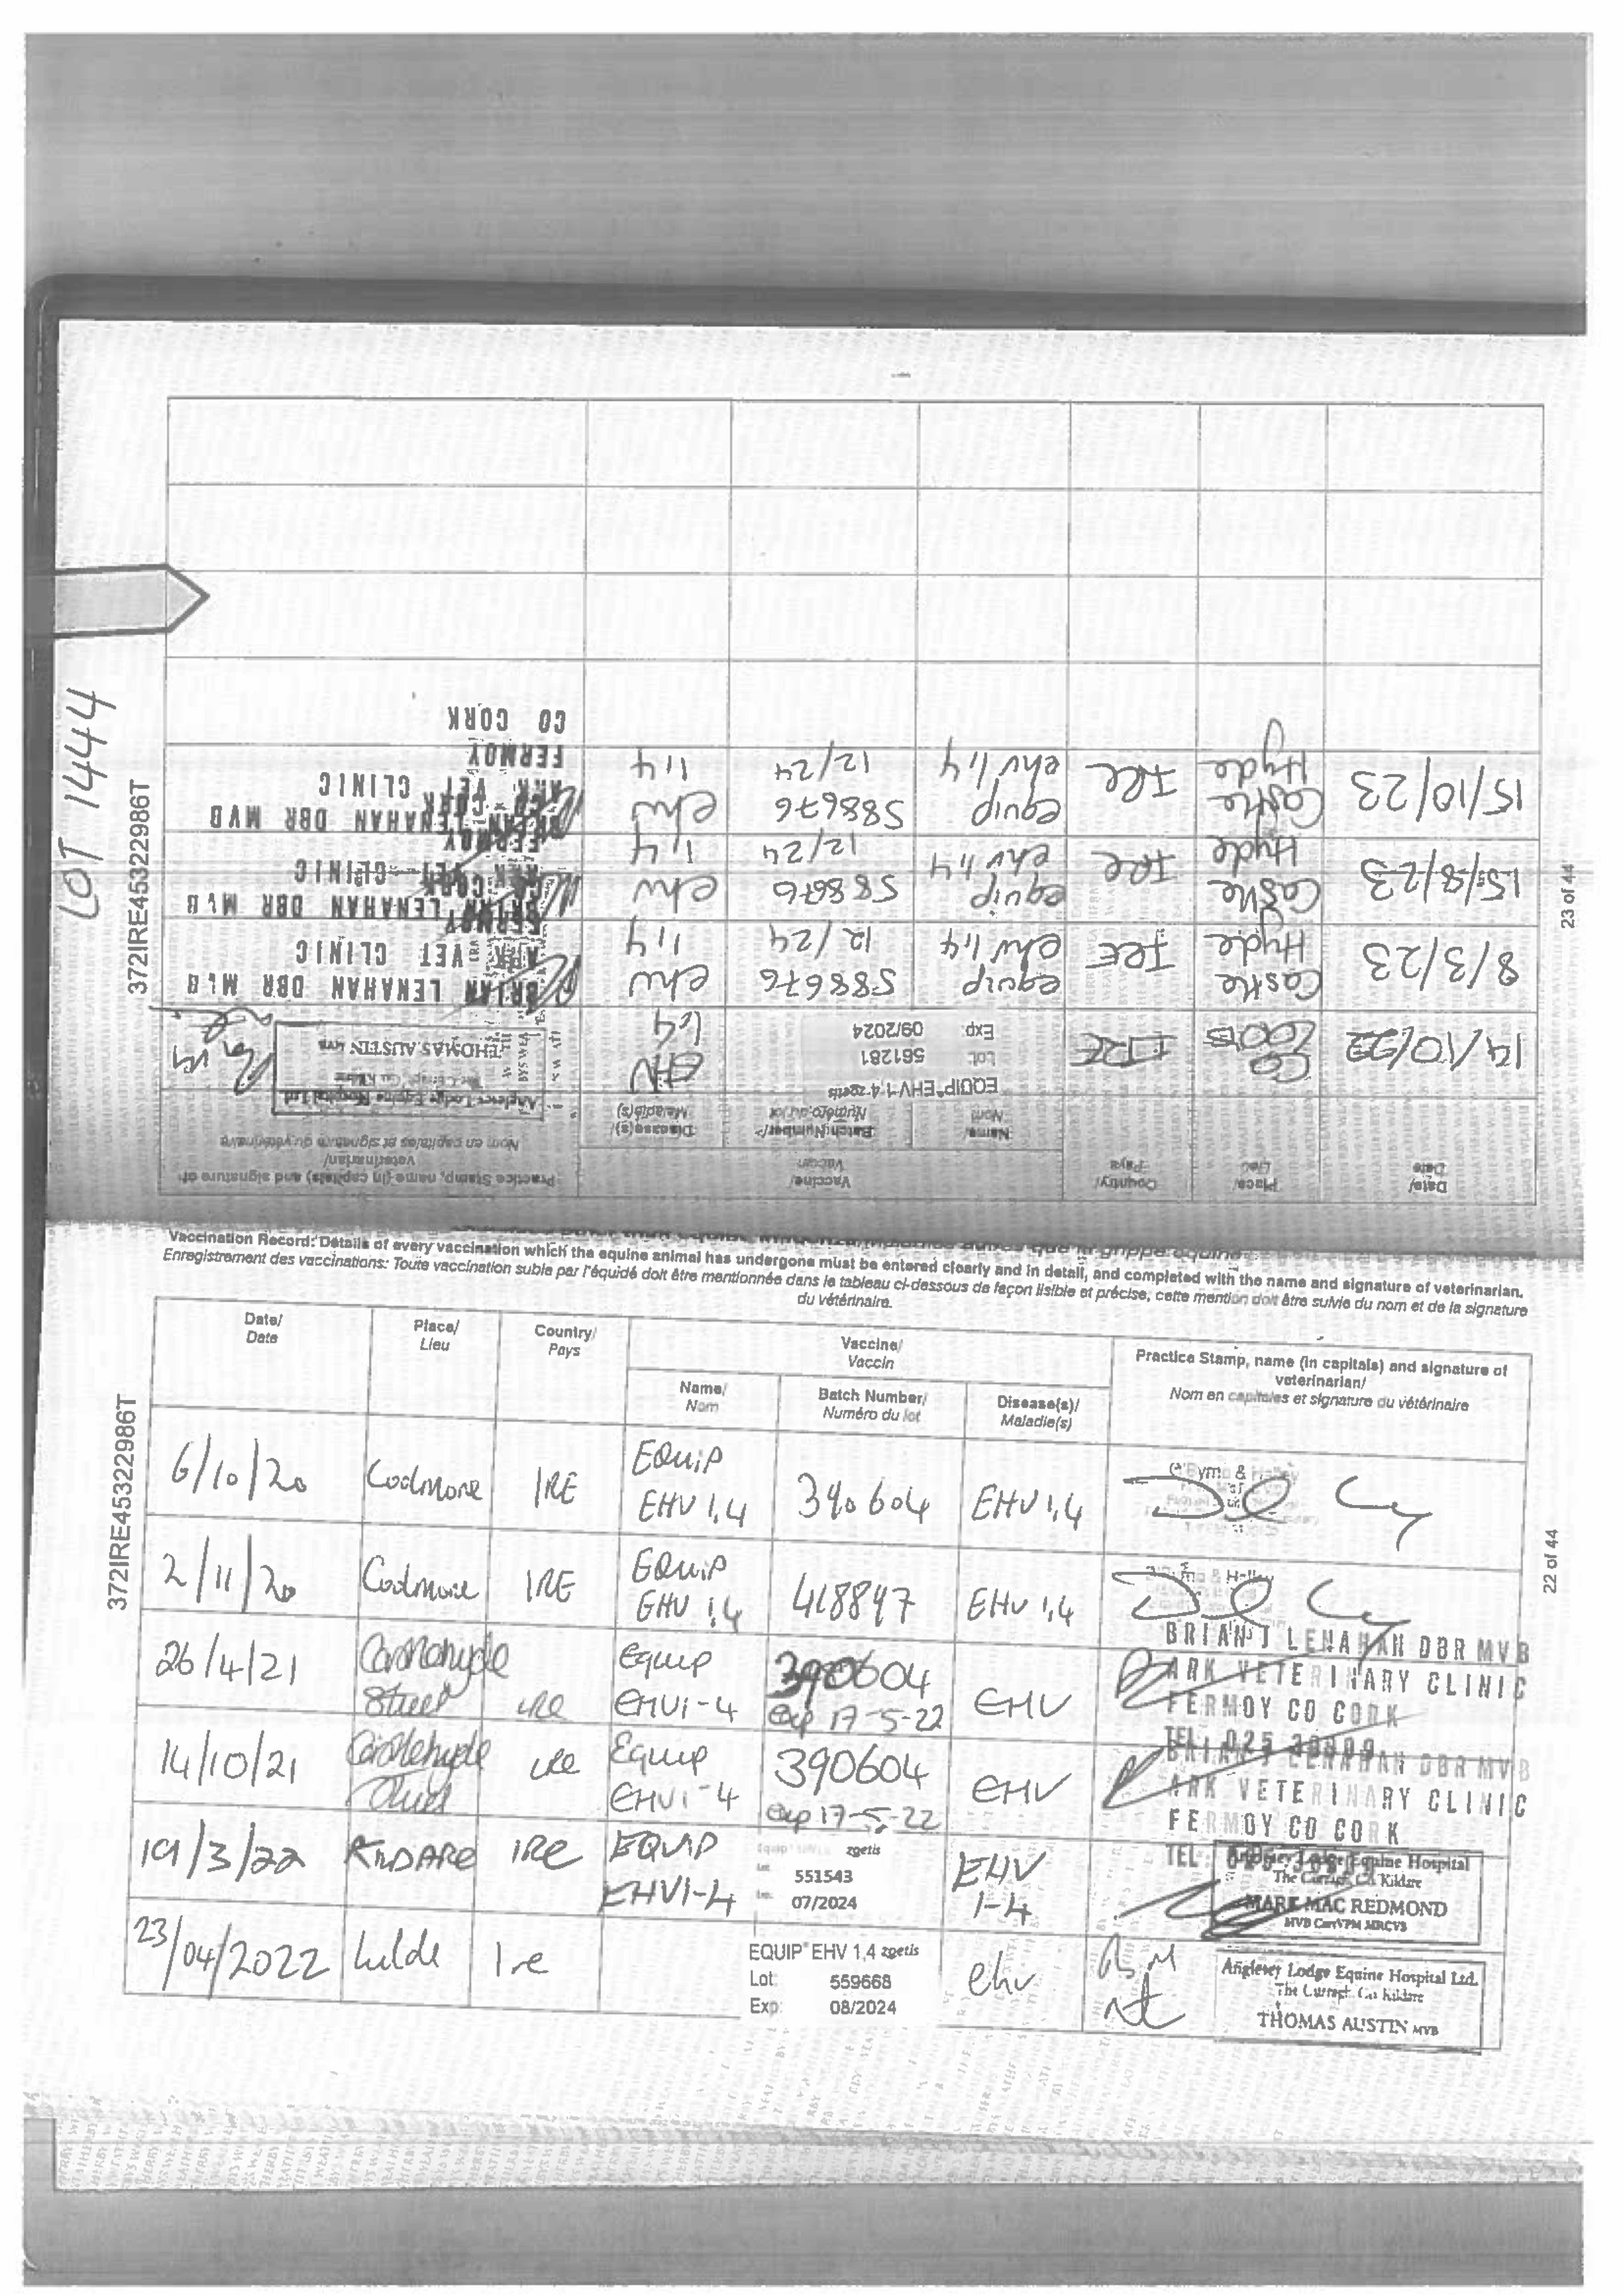 LOT 1444
372IRE45322986T
23 of 44
Date/ Place/ Country/ Vaccine/ Practice Stamp, name (in capitals) and signature of
Date Lieu Pays Vaccin veterinarian/
Nom en capitales et signature du vétérinaire
Name/ Batch Number/ Disease(s)/
Nom Numéro du lot Maladie(s)
14/10/22 CO IRE EQUIP® EHV 1,4 zoetis EHV Anglesey Lodge Equine Hospital Ltd
Lot: 561281 1,4 The Curragh, Co Kildare
Exp: 09/2024 THOMAS AUSTIN MVB
8/3/23 Castle IRE equip 588676 ehv BRIAN LENAHAN DBR MVB
Hyde ehv 1,4 12/24 1,4 ARK VET CLINIC
FERMOY
15/8/23 Castle IRE equip 588676 ehv BRIAN LENAHAN DBR MVB
Hyde ehv 1,4 12/24 1,4 ARK VET CLINIC
FERMOY
CO CORK
15/10/23 Castle IRE equip 588676 ehv BRIAN LENAHAN DBR MVB
Hyde ehv 1,4 12/24 1,4 ARK VET CLINIC
FERMOY
CO CORK
Vaccination Record: Details of every vaccination which the equine animal has undergone must be entered clearly and in detail, and completed with the name and signature of veterinarian.
Enregistrement des vaccinations: Toute vaccination subie par l'équidé doit être mentionnée dans le tableau ci-dessous de façon lisible et précise, cette mention doit être suivie du nom et de la signature
du vétérinaire.
372IRE45322986T
22 of 44
Date/ Place/ Country/ Vaccine/ Practice Stamp, name (in capitals) and signature of
Date Lieu Pays Vaccin veterinarian/
Nom en capitales et signature du vétérinaire
Name/ Batch Number/ Disease(s)/
Nom Numéro du lot Maladie(s)
6/10/20 Coolmore IRE EQUIP
EHV 1,4 390604 EHV 1,4
2/11/20 Coolmore IRE EQUIP
EHV 1,4 418897 EHV 1,4
26/4/21 Castlehyde Equip 390604 EHV BRIAN J LENAHAN DBR MVB
Stud IRE EHV1-4 exp 17-5-22 ARK VETERINARY CLINIC
FERMOY CO CORK
TEL 025
14/10/21 Castlehyde IRE Equip 390604 EHV BRIAN J LENAHAN DBR MVB
Stud EHV1-4 exp 17-5-22 ARK VETERINARY CLINIC
FERMOY CO CORK
TEL
19/3/22 KILDARE IRE EQUIP zoetis EHV Anglesey Lodge Equine Hospital
EHV1-4 551543 1-4 The Curragh, Co Kildare
07/2024 MARK MAC REDMOND
MVB CertVPM MRCVS
23/04/2022 Ire EQUIP® EHV 1,4 zoetis ehv Anglesey Lodge Equine Hospital Ltd.
Lot: 559668 The Curragh, Co Kildare
Exp: 08/2024 THOMAS AUSTIN MVB